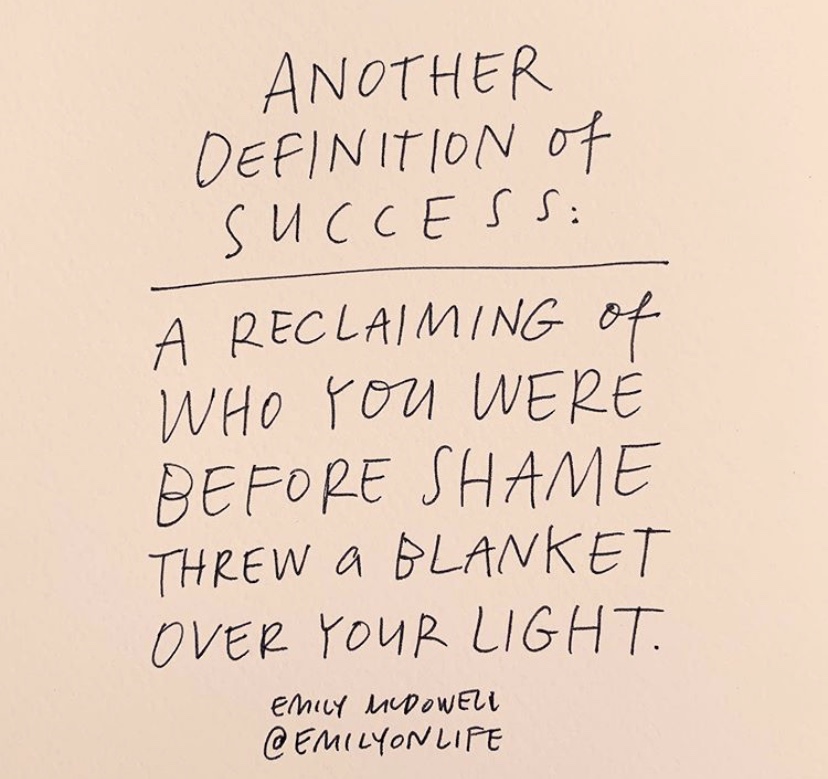 ANOTHER
DEFINITION of
SUCCESS:
A RECLAIMING of
WHO YOU WERE
BEFORE SHAME
THREW a BLANKET
OVER YOUR LIGHT.
EMILY McDOWELL
@EMILYONLIFE